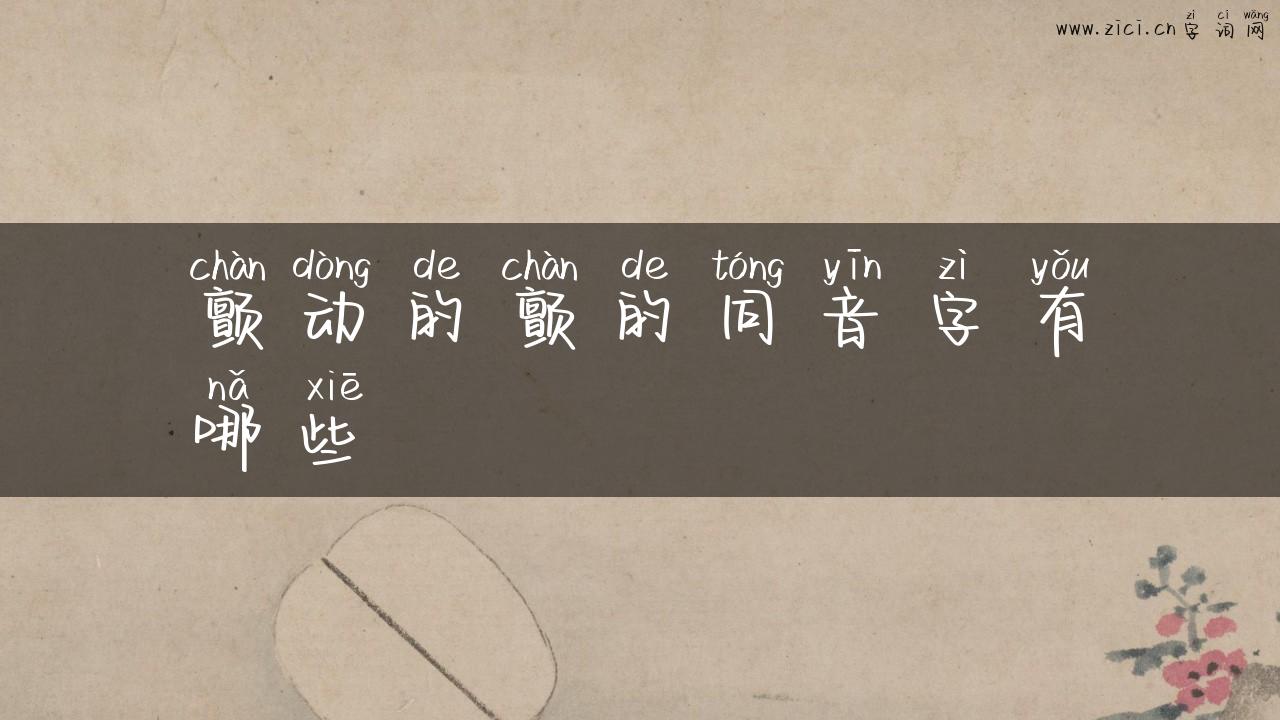 zì cí wǎng
www.zici.cn字词网
chàn dòng de chàn de tóng yīn zì yǒu
颤动的颤的同音字有
nǎ xiē
哪些